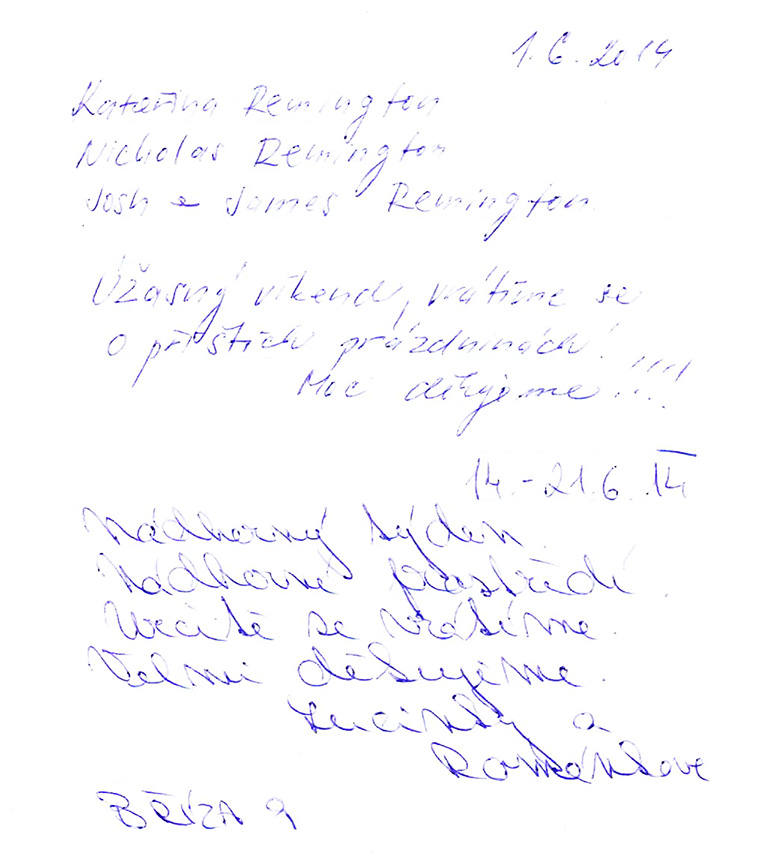 1.6.2014
Kateřina Remington
Nicholas Remington
Josh a James Remington
Úžasný víkend, vrátíme se
o příštích prázdninách!
Moc děkujeme!!!
14.-21.6.14
Nádherný týden.
Nádherné prostředí.
Určitě se vrátíme.
Velmi děkujeme.
a
BŘÍZA 9